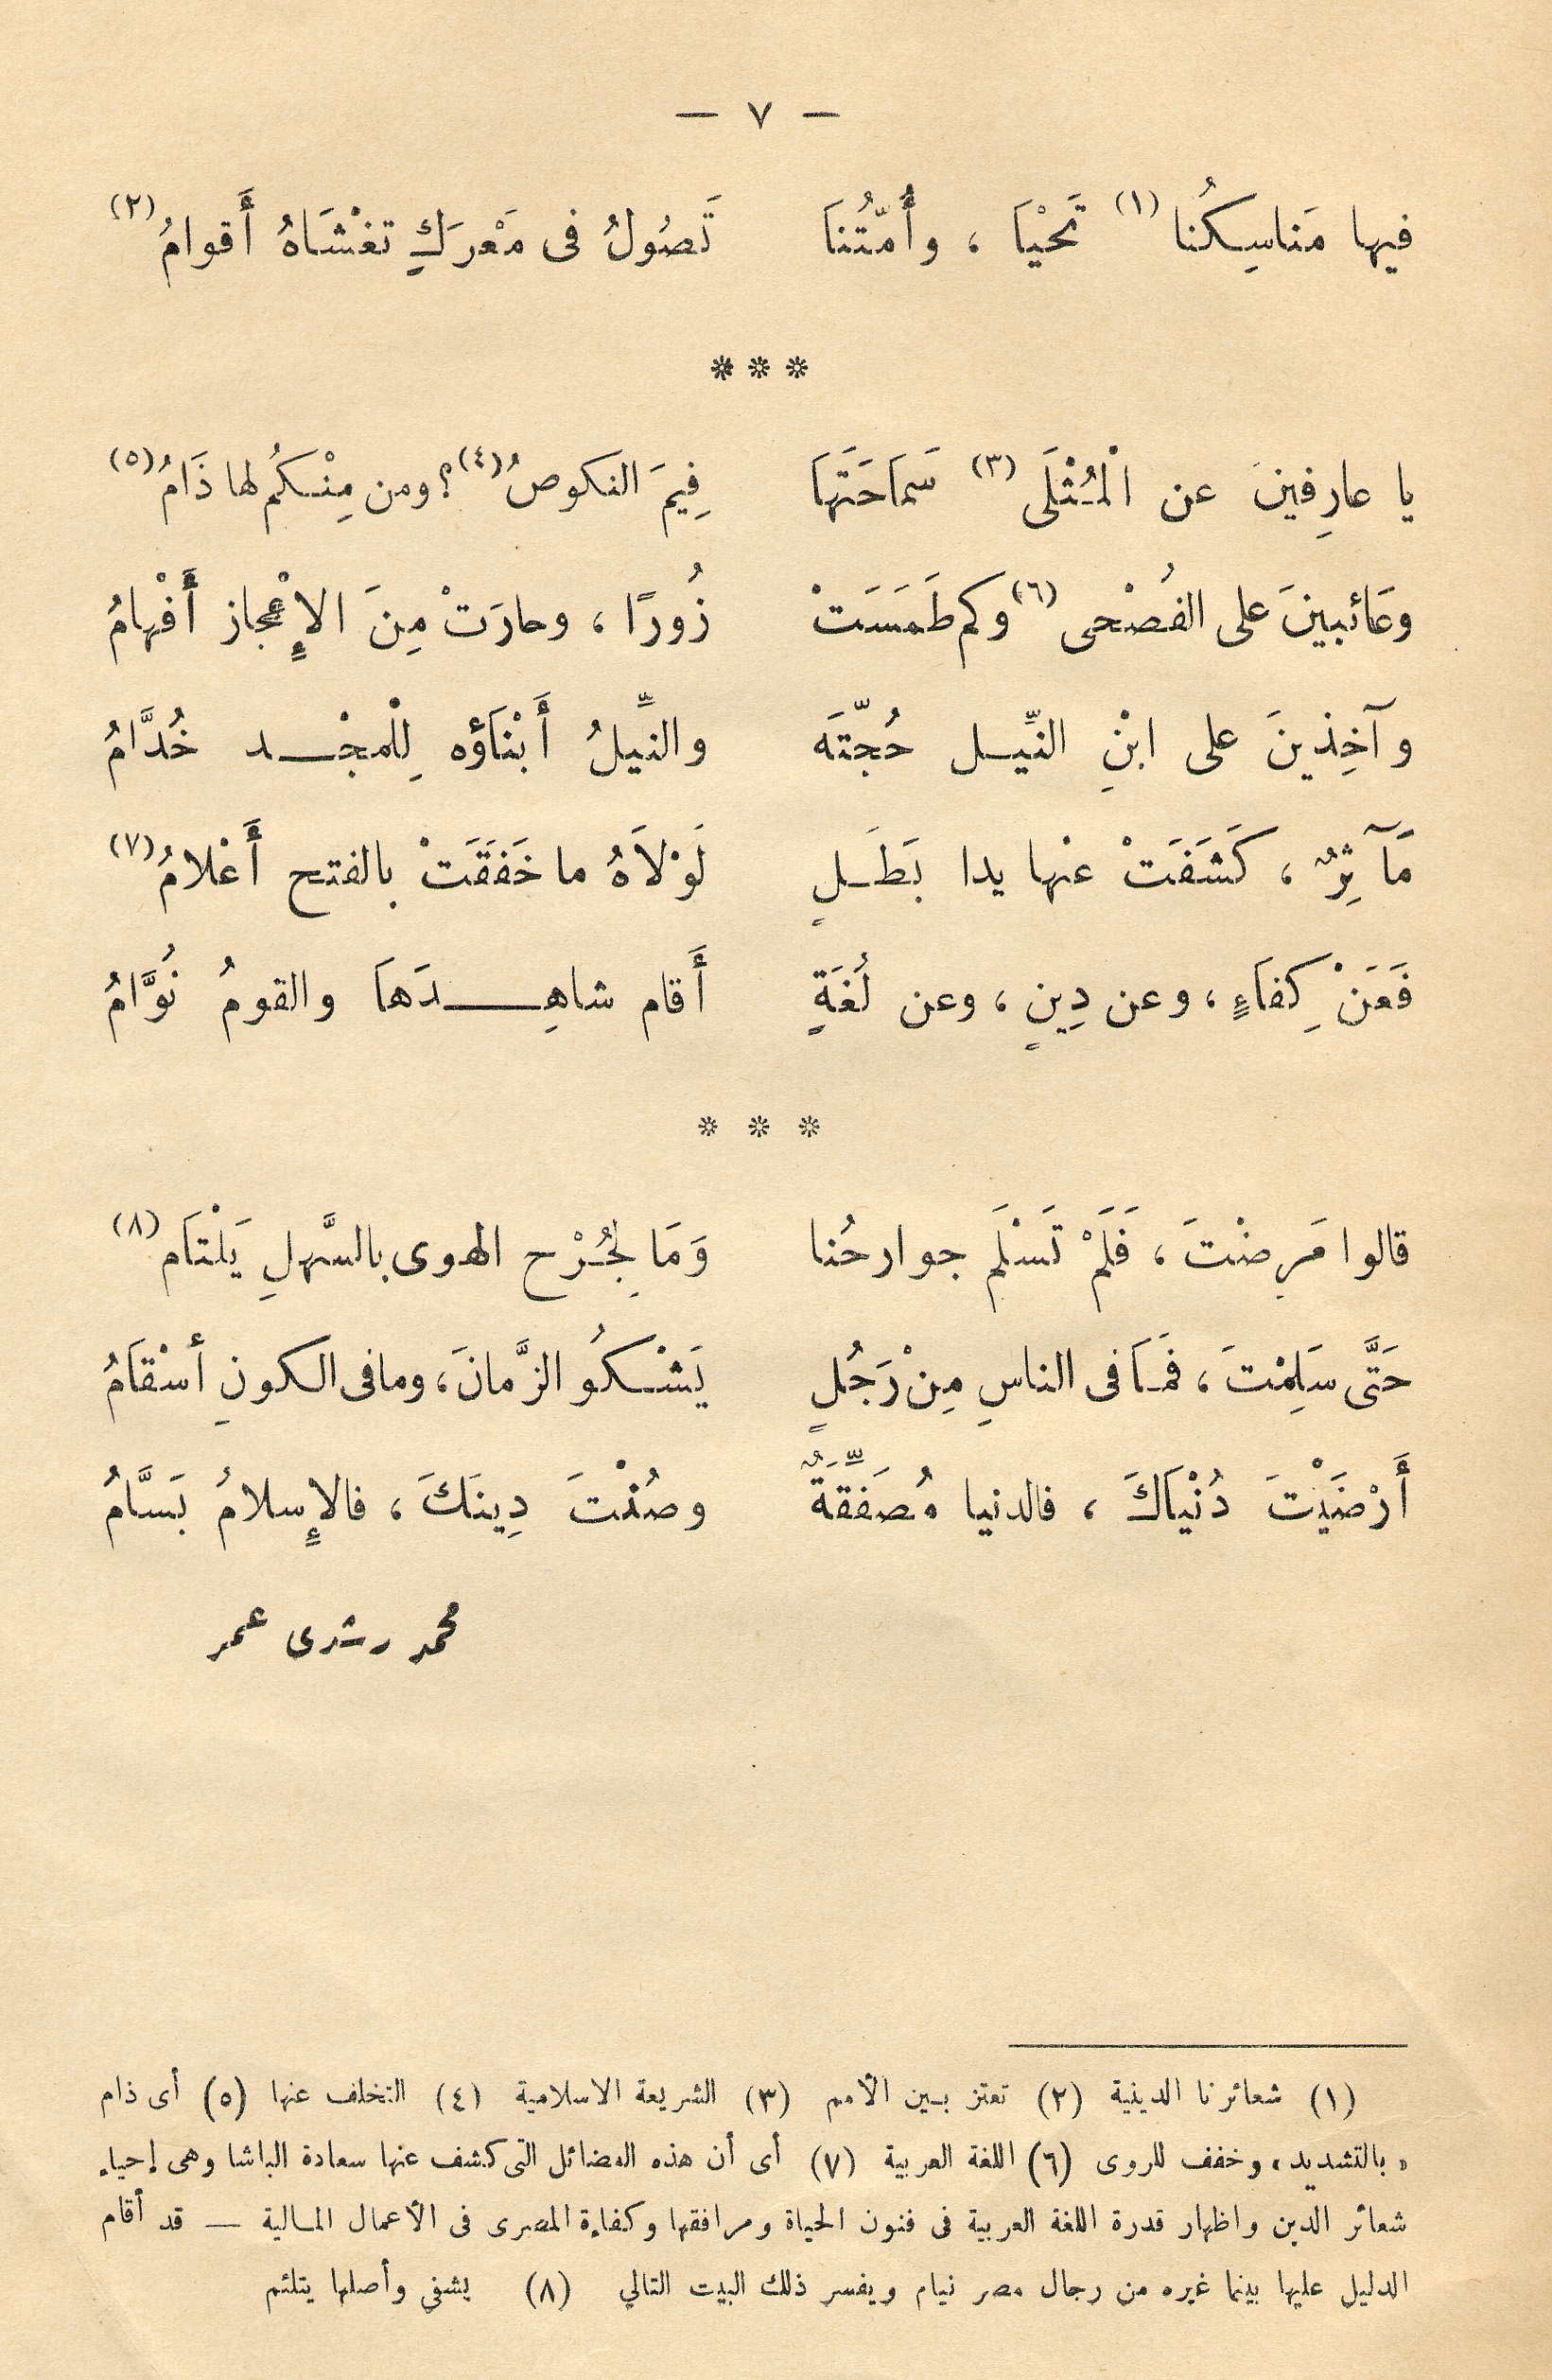 — ٧ —
فيها مَناسِكُنا (١) تَحْيَا ، وأُمّتُنَا تَصُولُ فى مَعْرَكٍ تغْشَاهُ أَقوامُ (٢)
***
يا عارِفينَ عن الْمُثْلَى (٣) سَماَحَتَهَا فِيمَ النكوصُ (٤) ؟ ومن مِنْكُم لها ذَامُ (٥)
وعَائبينَ على الفُصْحى (٦) وكم طَمَسَتْ زُورًا ، وحارَتْ مِنَ الإِعْجاز أَفْهامُ
وآخِذينَ على ابْنِ النِّيل حُجّتَه والنِّيلُ أَبْنَاؤه لِلْمجْد خُدَّامُ
مَآثِرٌ ، كَشَفَتْ عنْها يدا بَطَلٍ لَوْلاَهُ ما خَفَقَتْ بالفتح أَعْلامُ (٧)
فَعَنْ كِفاَءٍ ، وعن دِينٍ ، وعن لُغَةٍ أَقام شاهِدَهاَ والقومُ نُوَّامُ
* * *
قالوا مَرِضْتَ ، فَلَمْ تَسْلَم جوارحُنا وَمَا لِجُرْح الهوى بالسَّهلِ يَلْتاَم (٨)
حَتَّى سَلِمْتَ ، فَمَا فى الناسِ مِنْ رَجُلٍ يَشْكُو الزَّمانَ ، وما فى الكونِ أسْقاَمُ
أَرْضَيْتَ دُنْيَاكَ ، فالدنيا مُصَفِّقَةٌ وصُنْتَ دِينَكَ ، فالإِسلامُ بَسَّامُ
محمد رشدى عمر
(١) شعائرنا الدينية (٢) تعتز بين الأمم (٣) الشريعة الاسلامية (٤) التخلف عنها (٥) أى ذام
« بالتشديد » وخفف للروى (٦) اللغة العربية (٧) أى أن هذه الفضائل التى كشف عنها سعادة الباشا وهى إحياء
شعائر الدين واظهار قدرة اللغة العربية فى فنون الحياة ومرافقها وكفاءة المصرى فى الأعمال المالية — قد أقام
الدليل عليها بينما غيره من رجال مصر نيام ويفسر ذلك البيت التالي (٨) يشفى وأصلها يتلئم